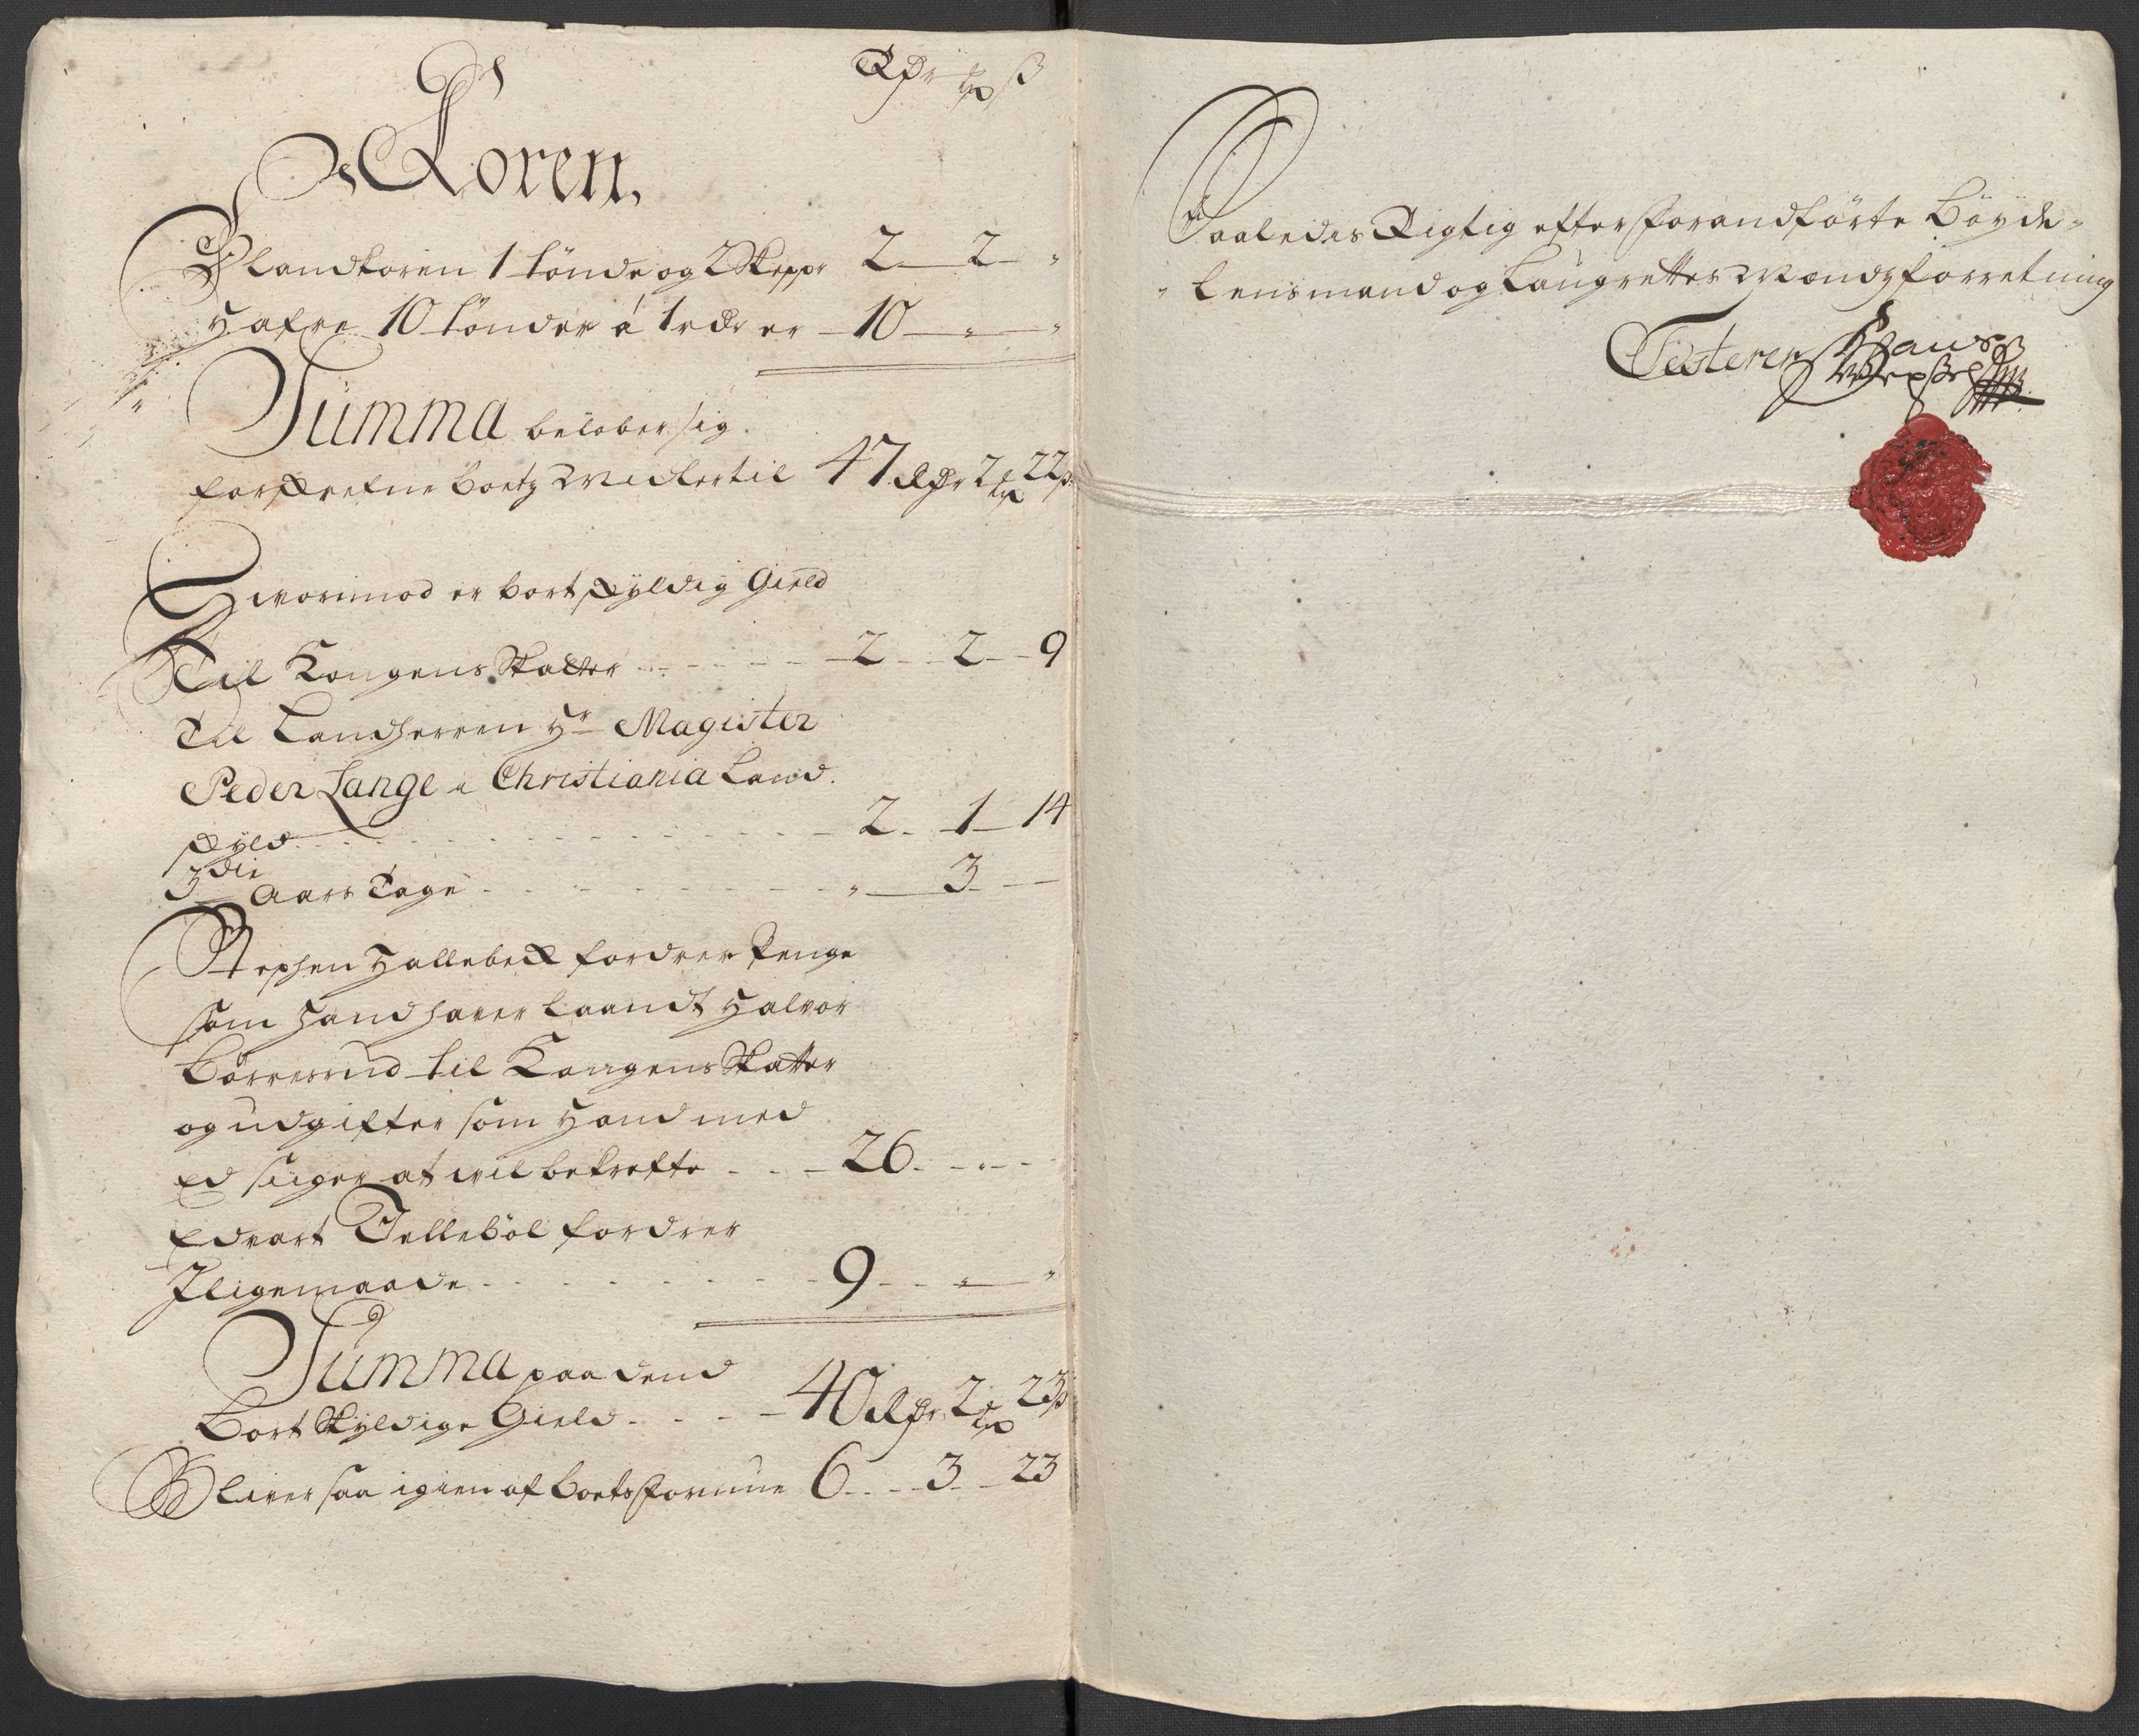 Rdr ß
Koren,
Blandkoren 1 tönde og 2 Skepper 2 2 "
Hafre 10 tönder á 1 rdr er 10 " "
Summa beløber sig
forskrefne boetz Midler til 47 Rdr 2 22 ß
Hvorimod er bortskyldig Gield
Til Kongens Skatter 2 2 9
Til Landherren Hr Magister
Peder Lange i Christiania Land
skyld 2 1 14
3die Aars Tage " 3
Stephen Hallebeck fordrer Penge
som hand hafver laandt Halvor
Börresrud til Kongens Skatter
og udgifter som Hand med
Ed siiger at vil bekrefte 26
Edvart Telleböl fordrer
Iligemaade 9 " "
Summa paa dend
Bort Skyldige Gield 40 Rdr 2 23 ß
Blifver saa igien af boets formue 6 3 23
Saaledes Rigtig efter forandførte böyde-
Lensmand og Laugrettes Mændz forretning
Testerer